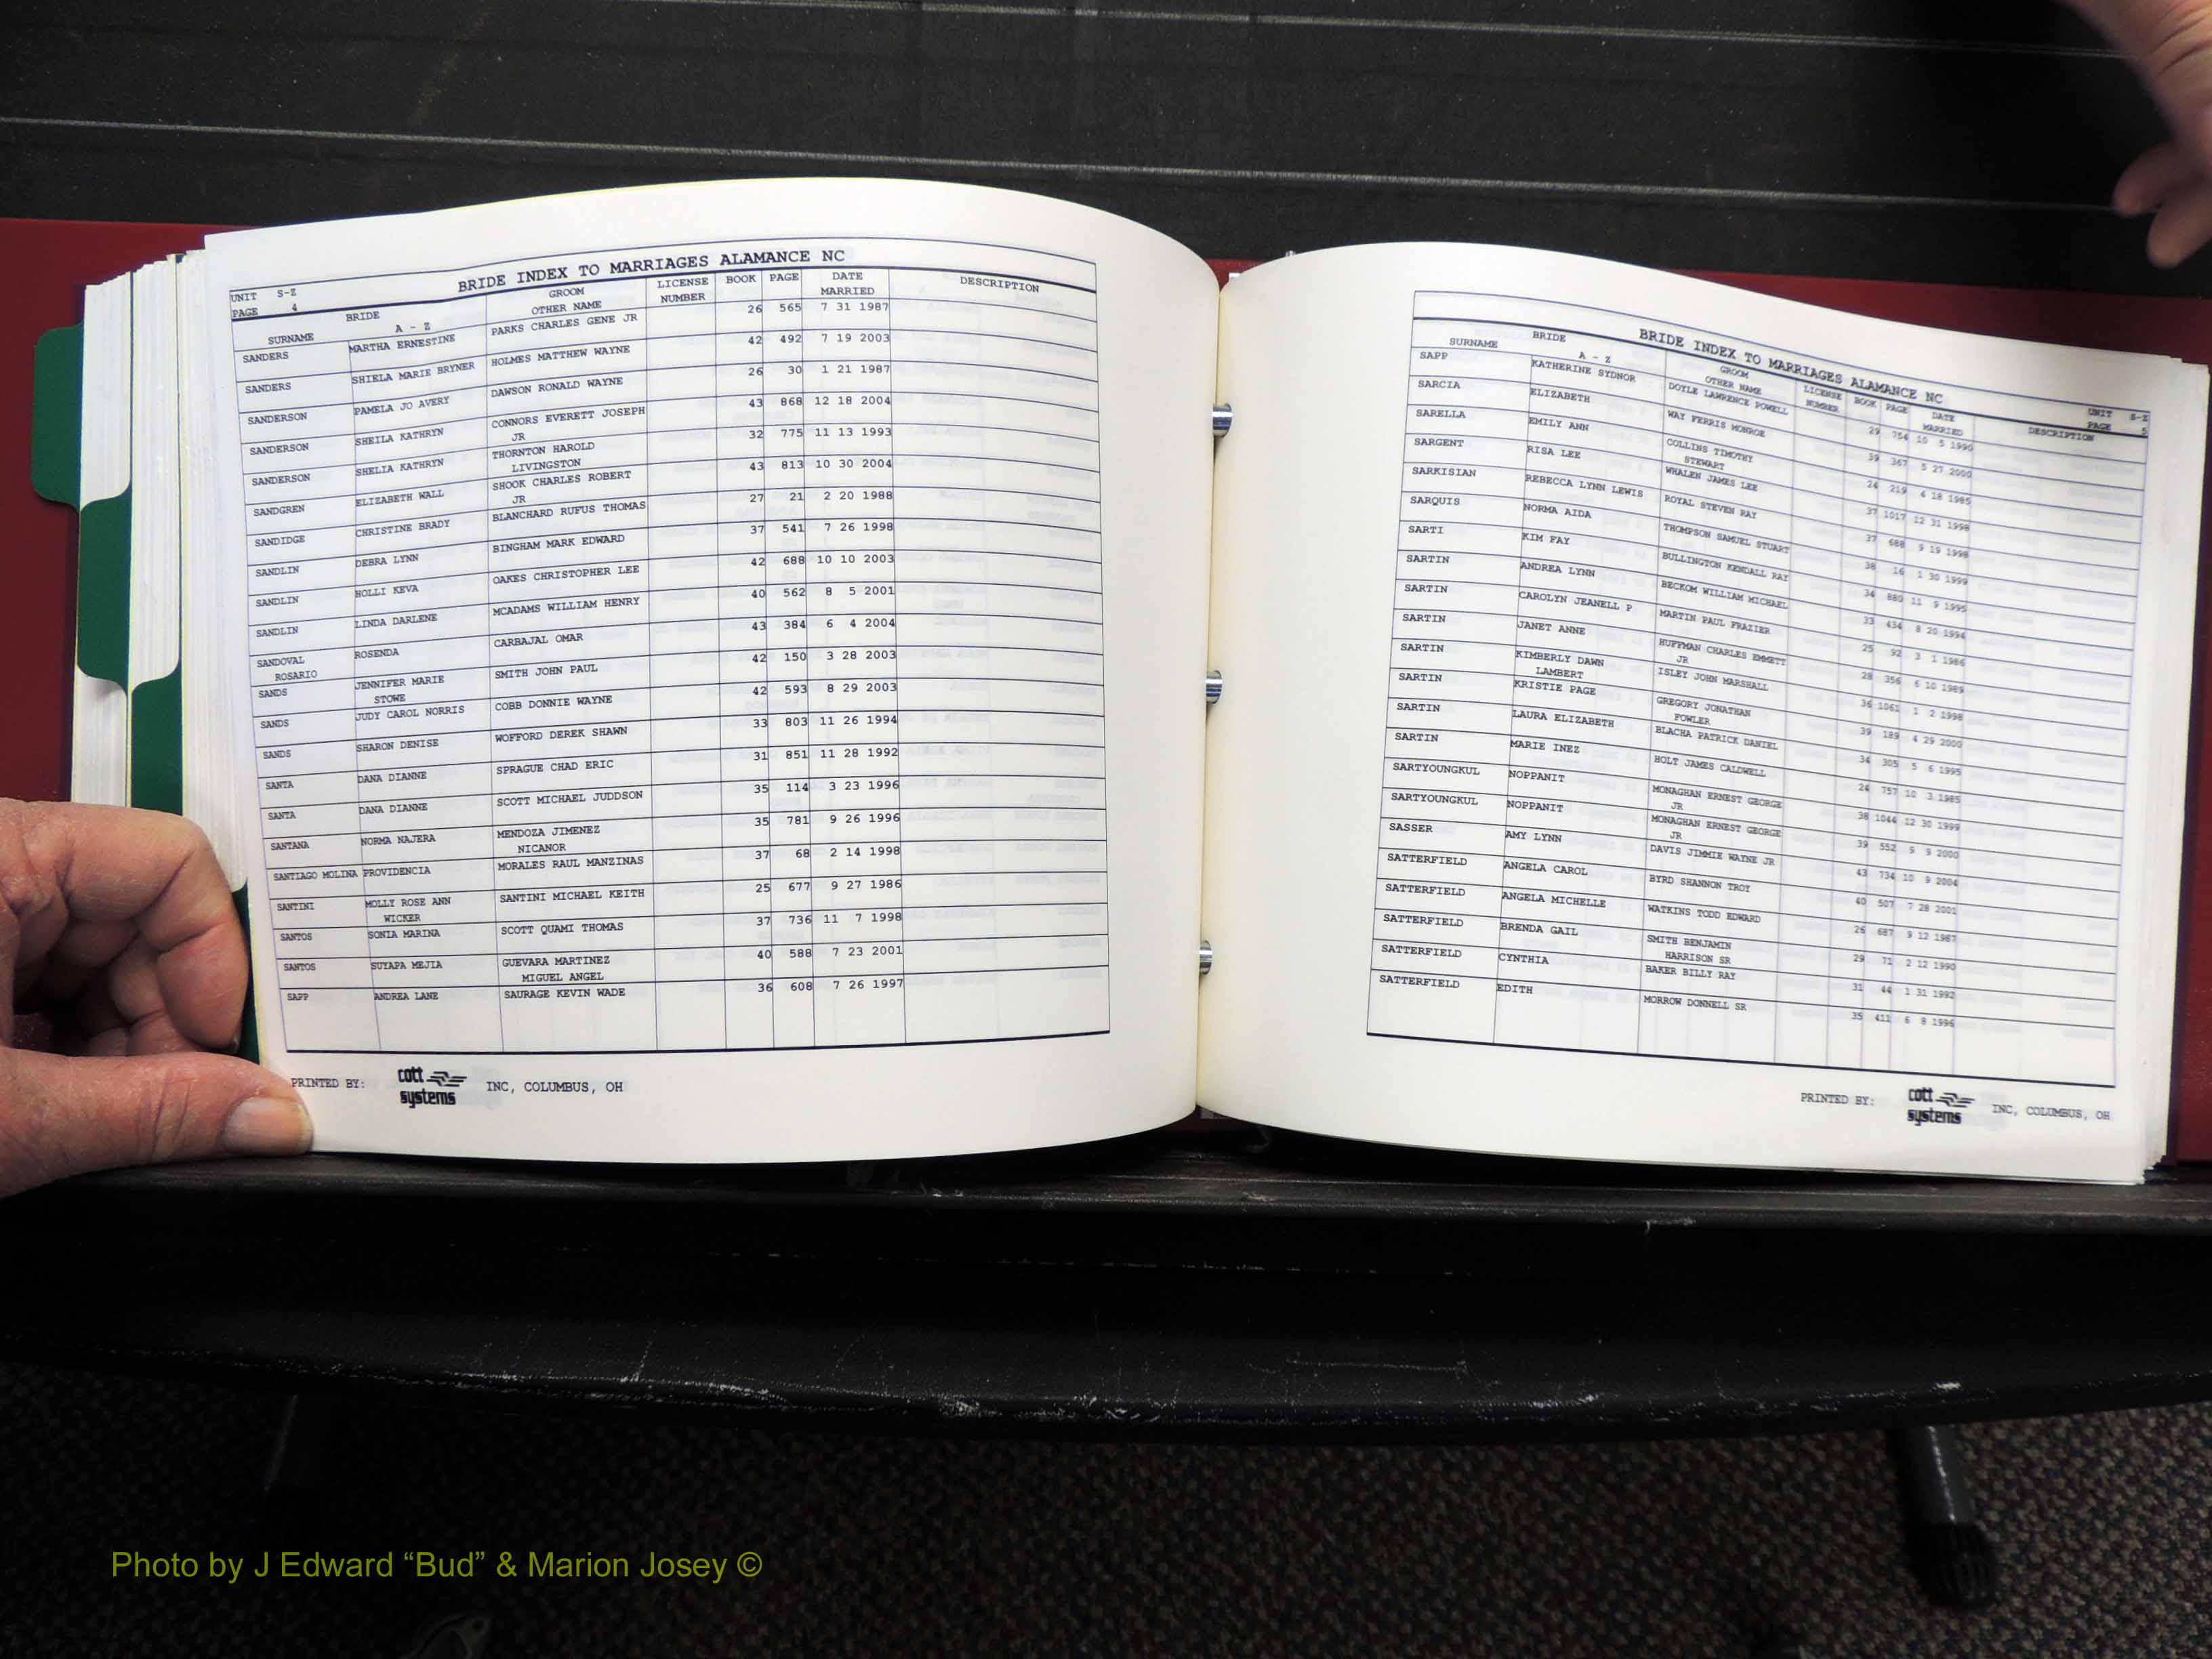 BRIDE INDEX TO MARRIAGES ALAMANCE NC
UNIT S-Z
PAGE 4
SURNAME BRIDE A - Z GROOM OTHER NAME LICENSE NUMBER BOOK PAGE DATE MARRIED DESCRIPTION
SANDERS MARTHA ERNESTINE PARKS CHARLES GENE JR 26 565 7 31 1987
SANDERS SHIELA MARIE BRYNER HOLMES MATTHEW WAYNE 42 492 7 19 2003
SANDERSON PAMELA JO AVERY DAWSON RONALD WAYNE 26 30 1 21 1987
SANDERSON SHEILA KATHRYN CONNORS EVERETT JOSEPH 43 868 12 18 2004
JR
SANDERSON SHELIA KATHRYN THORNTON HAROLD 32 775 11 13 1993
LIVINGSTON
SANDGREN ELIZABETH WALL SHOOK CHARLES ROBERT 43 813 10 30 2004
JR
SANDIDGE CHRISTINE BRADY BLANCHARD RUFUS THOMAS 27 21 2 20 1988
SANDLIN DEBRA LYNN BINGHAM MARK EDWARD 37 541 7 26 1998
SANDLIN HOLLI KEVA OAKES CHRISTOPHER LEE 42 688 10 10 2003
SANDLIN LINDA DARLENE MCADAMS WILLIAM HENRY 40 562 8 5 2001
SANDOVAL ROSENDA CARBAJAL OMAR 43 384 6 4 2004
ROSARIO
SANDS JENNIFER MARIE SMITH JOHN PAUL 42 150 3 28 2003
STOWE
SANDS JUDY CAROL NORRIS COBB DONNIE WAYNE 42 593 8 29 2003
SANDS SHARON DENISE WOFFORD DEREK SHAWN 33 803 11 26 1994
SANTA DANA DIANNE SPRAGUE CHAD ERIC 31 851 11 28 1992
SANTA DANA DIANNE SCOTT MICHAEL JUDDSON 35 114 3 23 1996
SANTANA NORMA NAJERA MENDOZA JIMENEZ 35 781 9 26 1996
NICANOR
SANTIAGO MOLINA PROVIDENCIA MORALES RAUL MANZINAS 37 68 2 14 1998
SANTINI MOLLY ROSE ANN SANTINI MICHAEL KEITH 25 677 9 27 1986
WICKER
SANTOS SONIA MARINA SCOTT QUAMI THOMAS 37 736 11 7 1998
SANTOS SUYAPA MEJIA GUEVARA MARTINEZ 40 588 7 23 2001
MIGUEL ANGEL
SAPP ANDREA LANE SAURAGE KEVIN WADE 36 608 7 26 1997
PRINTED BY: cott systems INC, COLUMBUS, OH
BRIDE INDEX TO MARRIAGES ALAMANCE NC
UNIT S-Z
PAGE 5
SURNAME BRIDE A - Z GROOM OTHER NAME LICENSE NUMBER BOOK PAGE DATE MARRIED DESCRIPTION
SAPP KATHERINE SYDNOR DOYLE LAWRENCE POWELL 29 754 10 5 1990
SARCIA ELIZABETH WAY FERRIS MONROE 39 367 5 27 2000
SARELLA EMILY ANN COLLINS TIMOTHY 24 219 4 18 1985
STEWART
SARGENT RISA LEE WHALEN JAMES LEE 37 1017 12 31 1998
SARKISIAN REBECCA LYNN LEWIS ROYAL STEVEN RAY 37 688 9 19 1998
SARQUIS NORMA AIDA THOMPSON SAMUEL STUART 38 16 1 30 1999
SARTI KIM FAY BULLINGTON KENDALL RAY 34 880 11 9 1995
SARTIN ANDREA LYNN BECKOM WILLIAM MICHAEL 33 434 8 20 1994
SARTIN CAROLYN JEANELL P MARTIN PAUL FRAZIER 25 92 3 1 1986
SARTIN JANET ANNE HUFFMAN CHARLES EMMETT 28 356 6 10 1989
JR
SARTIN KIMBERLY DAWN ISLEY JOHN MARSHALL 36 1061 1 2 1998
LAMBERT
SARTIN KRISTIE PAGE GREGORY JONATHAN 39 189 4 29 2000
FOWLER
SARTIN LAURA ELIZABETH BLACHA PATRICK DANIEL 34 305 5 6 1995
SARTIN MARIE INEZ HOLT JAMES CALDWELL 24 757 10 3 1985
SARTYOUNGKUL NOPPANIT MONAGHAN ERNEST GEORGE 38 1044 12 30 1999
JR
SARTYOUNGKUL NOPPANIT MONAGHAN ERNEST GEORGE 39 552 9 9 2000
JR
SASSER AMY LYNN DAVIS JIMMIE WAYNE JR 43 734 10 9 2004
SATTERFIELD ANGELA CAROL BYRD SHANNON TROY 40 507 7 28 2001
SATTERFIELD ANGELA MICHELLE WATKINS TODD EDWARD 26 687 9 12 1987
SATTERFIELD BRENDA GAIL SMITH BENJAMIN 29 71 2 12 1990
HARRISON SR
SATTERFIELD CYNTHIA BAKER BILLY RAY 31 44 1 31 1992
SATTERFIELD EDITH MORROW DONNELL SR 35 411 6 8 1996
PRINTED BY: cott systems INC, COLUMBUS, OH
Photo by J Edward “Bud” & Marion Josey ©